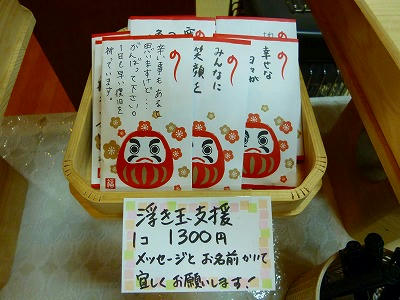 の
辛い事もあると
思いますけど…
がんばって下さい。
1日も早い復旧を
祈っています。
の
みんなに
笑顔を
の
幸せな
福
浮き玉支援
1コ 1300円
メッセージと お名前かいて
宜しくお願いします!